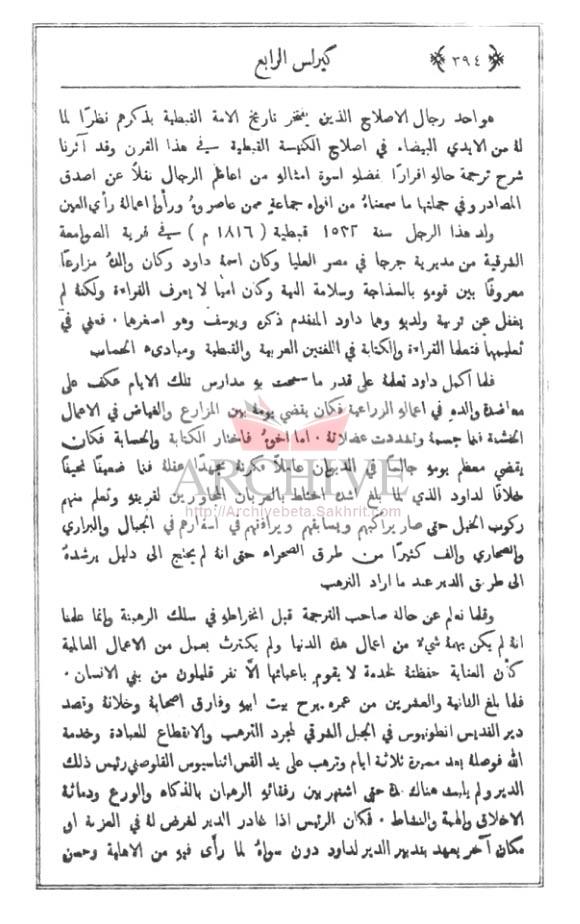 ﴿ ٣٩٤ ﴾
كيرلس الرابع
هو احد رجال الاصلاح الذين يفتخر تاريخ الامة القبطية بذكرهم نظرًا لما
لهُ من الايدي البيضاء في اصلاح الكنيسة القبطية في هذا القرن وقد آثرنا
شرح ترجمة حالهِ اقرارًا بفضلهِ اسوة امثالهِ من اعاظم الرجال نقلًا عن اصدق
المصادر وفي جملتها ما سمعناهُ من افواه جماعة ممن عاصروهُ ورأوا اعمالهُ رأي العين
ولد هذا الرجل سنة ١٥٣٢ قبطية ( ١٨١٦ م ) في قرية الصوامعة
الشرقية من مديرية جرجا في مصر العليا وكان اسمهُ داود وكان والدهُ مزارعًا
معروفًا بين قومهِ بالسذاجة وسلامة النية وكان اميًّا لا يعرف القراءة ولكنهُ لم
يغفل عن تربية ولديهِ وهما داود المتقدم ذكرهُ ويوسف وهو اصغرهما ٠ فعني في
تعليمهما فتعلما القراءة والكتابة في اللغتين العربية والقبطية ومبادىء الحساب
فلما اكمل داود تعلمهُ على قدر ما سمحت بهِ مدارس تلك الايام عكف على
معاضدة والدهِ في اعمالهِ الزراعية فكان يقضي يومهُ بين المزارع والغياض في الاعمال
الخشنة فنما جسمهُ وتمددت عضلاتهُ ٠ اما اخوهُ فاختار الكتابة والحسابة فكان
يقضي معظم يومهِ جالسًا في الديوان عاملًا فكرتهُ مجهدًا عقلهُ فنما ضعيفًا نحيفًا
خلافًا لداود الذي لما بلغ اشدهُ اختلط بالعربان المجاورين لقريتهِ وتعلم منهم
ركوب الخيل حتى صار يراكبهم ويسابقهم ويرافقهم في اسفارهم في الجبال والبراري
والصحاري والف كثيرًا من طرق الصحراء حتى انهُ لم يحتج الى دليل يرشدهُ
الى طريق الدير عند ما اراد الترهب
وقلما نعلم عن حالة صاحب الترجمة قبل انخراطهِ في سلك الرهبنة وانما علمنا
انهُ لم يكن يهمهُ شيء من اعمال هذه الدنيا ولم يكترث بعمل من الاعمال العالمية
كأن العناية حفظتهُ لخدمة لا يقوم باعبائها الَّا نفر قليلون من بني الانسان ٠
فلما بلغ الثانية والعشرين من عمره برح بيت ابيهِ وفارق اصحابهُ وخلانهُ وقصد
دير القديس انطونيوس في الجبل الشرقي لمجرد الترهب والانقطاع للعبادة وخدمة
الله فوصلهُ بعد مسيرة ثلاثة ايام وترهب على يد القس اثناسيوس القلوصني رئيس ذلك
الدير ولم يلبث هناك مدة حتى اشتهر بين رفقائهِ الرهبان بالذكاء والورع ودماثة
الاخلاق والهمة والنشاط ٠ فكان الرئيس اذا غادر الدير لغرض لهُ في العزبة او
مكان آخر يعهد بتدبير الدير لداود دون سواهُ لما رأى فيهِ من الاهلية وحسن
ARCHIVE
http://Archivebeta.Sakhrit.com